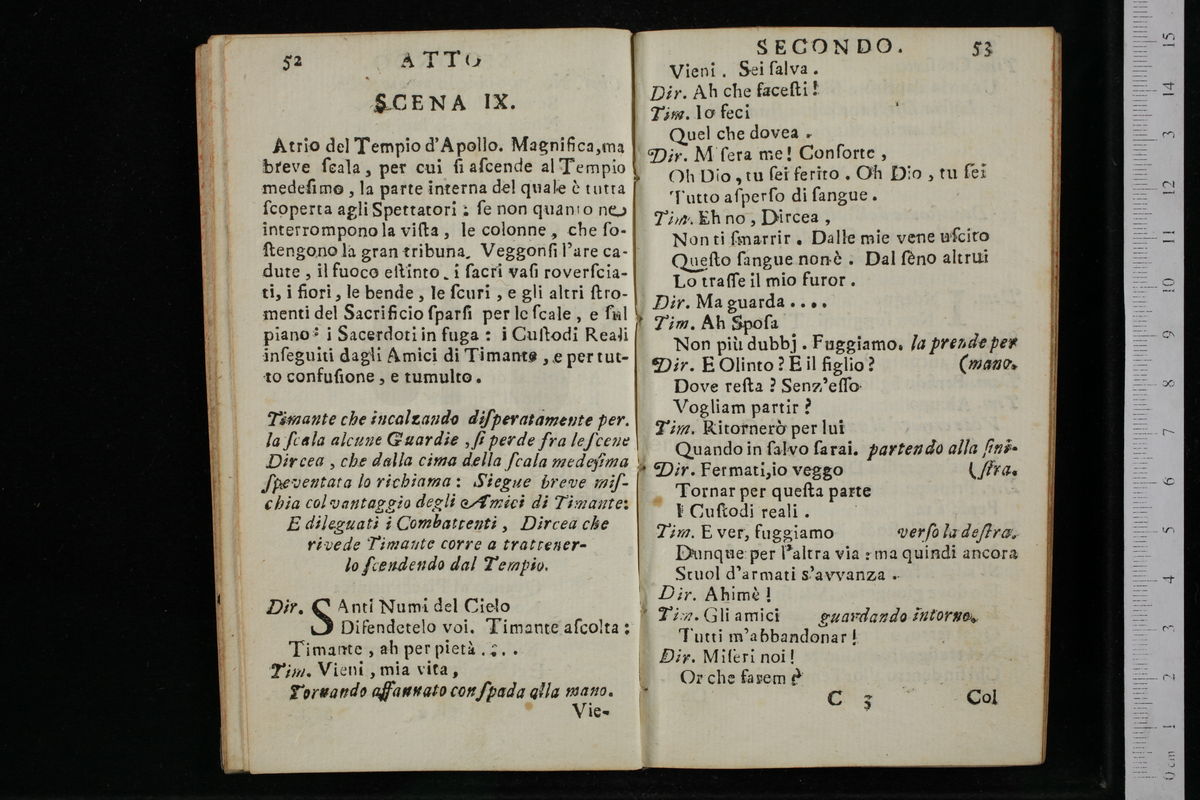 52 ATTO
SCENA IX.
Atrio del Tempio d'Apollo. Magnifica, ma
breve ſcala, per cui ſi aſcende al Tempio
medeſimo, la parte interna del quale è tutta
ſcoperta agli Spettatori: ſe non quanto ne
interrompono la viſta, le colonne, che ſo-
ſtengono la gran tribuna. Veggonſi l'are ca-
dute, il fuoco eſtinto. i ſacri vaſi roverſcia-
ti, i fiori, le bende, le ſcuri, e gli altri ſtro-
menti del Sacrificio ſparſi per le ſcale, e ſul
piano: i Sacerdoti in fuga: i Cuſtodi Reali
inſeguiti dagli Amici di Timante, e per tut-
to confuſione, e tumulto.
Timante che incalzando diſperatamente per.
la ſcala alcune Guardie, ſi perde fra le ſcene
Dircea, che dalla cima della ſcala medeſima
ſpeventata lo richiama: Siegue breve miſ-
chia col vantaggio degli Amici di Timante:
E dileguati i Combattenti, Dircea che
rivede Timante corre a trattener-
lo ſcendendo dal Tempio.
Dir. SAnti Numi del Cielo
Difendetelo voi. Timante aſcolta:
Timante, ah per pietà . : . .
Tim. Vieni, mia vita,
Tornando affannato con ſpada alla mano.
Vie-
SECONDO. 53
Vieni. Sei ſalva.
Dir. Ah che faceſti!
Tim. Io feci
Quel che dovea.
Dir. M ſera me! Conſorte,
Oh Dio, tu ſei ferito. Oh Dio, tu ſei
Tutto aſperſo di ſangue.
Tim. Eh no, Dircea,
Non ti ſmarrir. Dalle mie vene uſcito
Queſto ſangue non è. Dal ſèno altrui
Lo traſſe il mio furor.
Dir. Ma guarda....
Tim. Ah Spoſa
Non più dubbj. Fuggiamo. la prende per
Dir. E Olinto? E il figlio? (mano.
Dove reſta? Senz'eſſo
Vogliam partir?
Tim. Ritornerò per lui
Quando in ſalvo ſarai. partendo alla ſini-
Dir. Fermati, io veggo (ſtra.
Tornar per queſta parte
I Cuſtodi reali.
Tim. E ver, fuggiamo verſo la deſtra.
Dunque per l'altra via: ma quindi ancora
Stuol d'armati s'avvanza.
Dir. Ahimè!
Tim. Gli amici guardando intorno.
Tutti m'abbandonar!
Dir. Miſeri noi!
Or che farem?
C 3 Col
15
14
3
12
11
10
9
8
7
6
5
4
3
2
1
0 cm